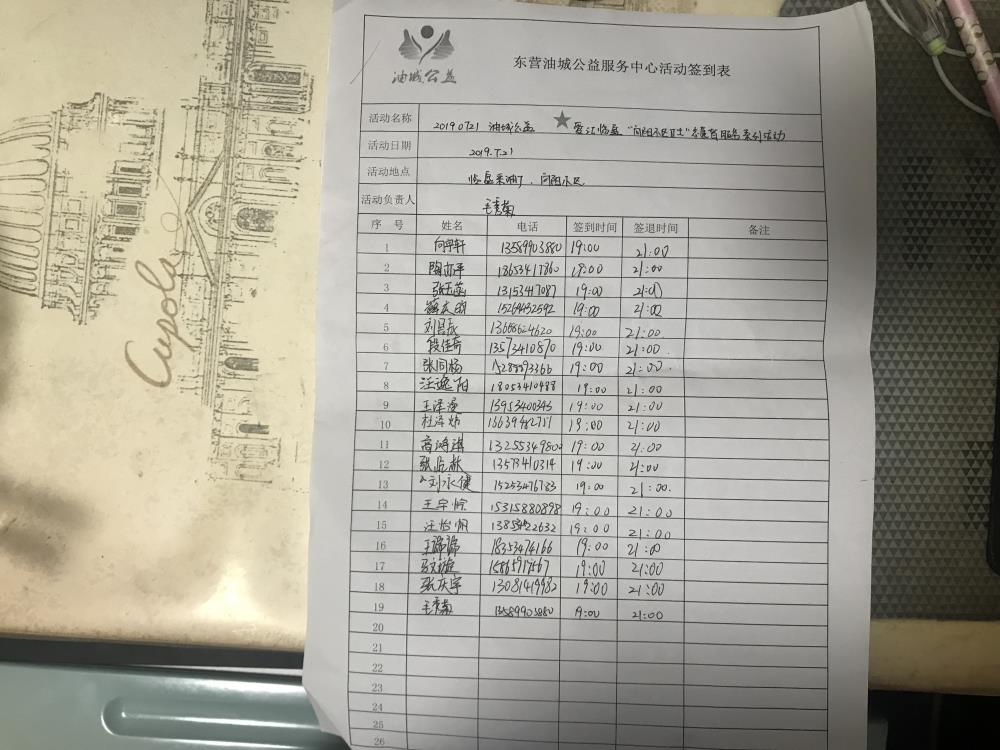 油城公益
东营油城公益服务中心活动签到表
活动名称 20190721 油城公益 ★ 爱汇临盘 "向阳小区卫士"志愿者服务系列活动
活动日期 2019.7.21
活动地点 临盘采油厂、向阳小区
活动负责人 王秀菊
序 号 姓名 电话 签到时间 签退时间 备注
1 向宇轩 13589903880 19:00 21:00
2 陶亦平 19:00 21:00
3 13153417087 19:00 21:00
4 15269432592 19:00 21:00
5 刘昌辰 13668624620 19:00 21:00
6 段佳奇 13573410870 19:00 21:00
7 张同杨 19:00 21:00
8 汪逸阳 18053410488 19:00 21:00
9 王泽漫 13953400343 19:00 21:00
10 杜泽炜 19:00 21:00
11 高鸿淇 13255349800 19:00 21:00
12 13573410314 19:00 21:00
13 刘永健 15253476783 19:00 21:00
14 王宇 15315880898 19:00 21:00
15 汪怡帆 19:00 21:00
16 王璐璐 18353474166 19:00 21:00
17 19:00 21:00
18 张庆宇 13081419982 19:00 21:00
19 王秀菊 13589903880 19:00 21:00
20
21
22
23
24
25
26
Cupola